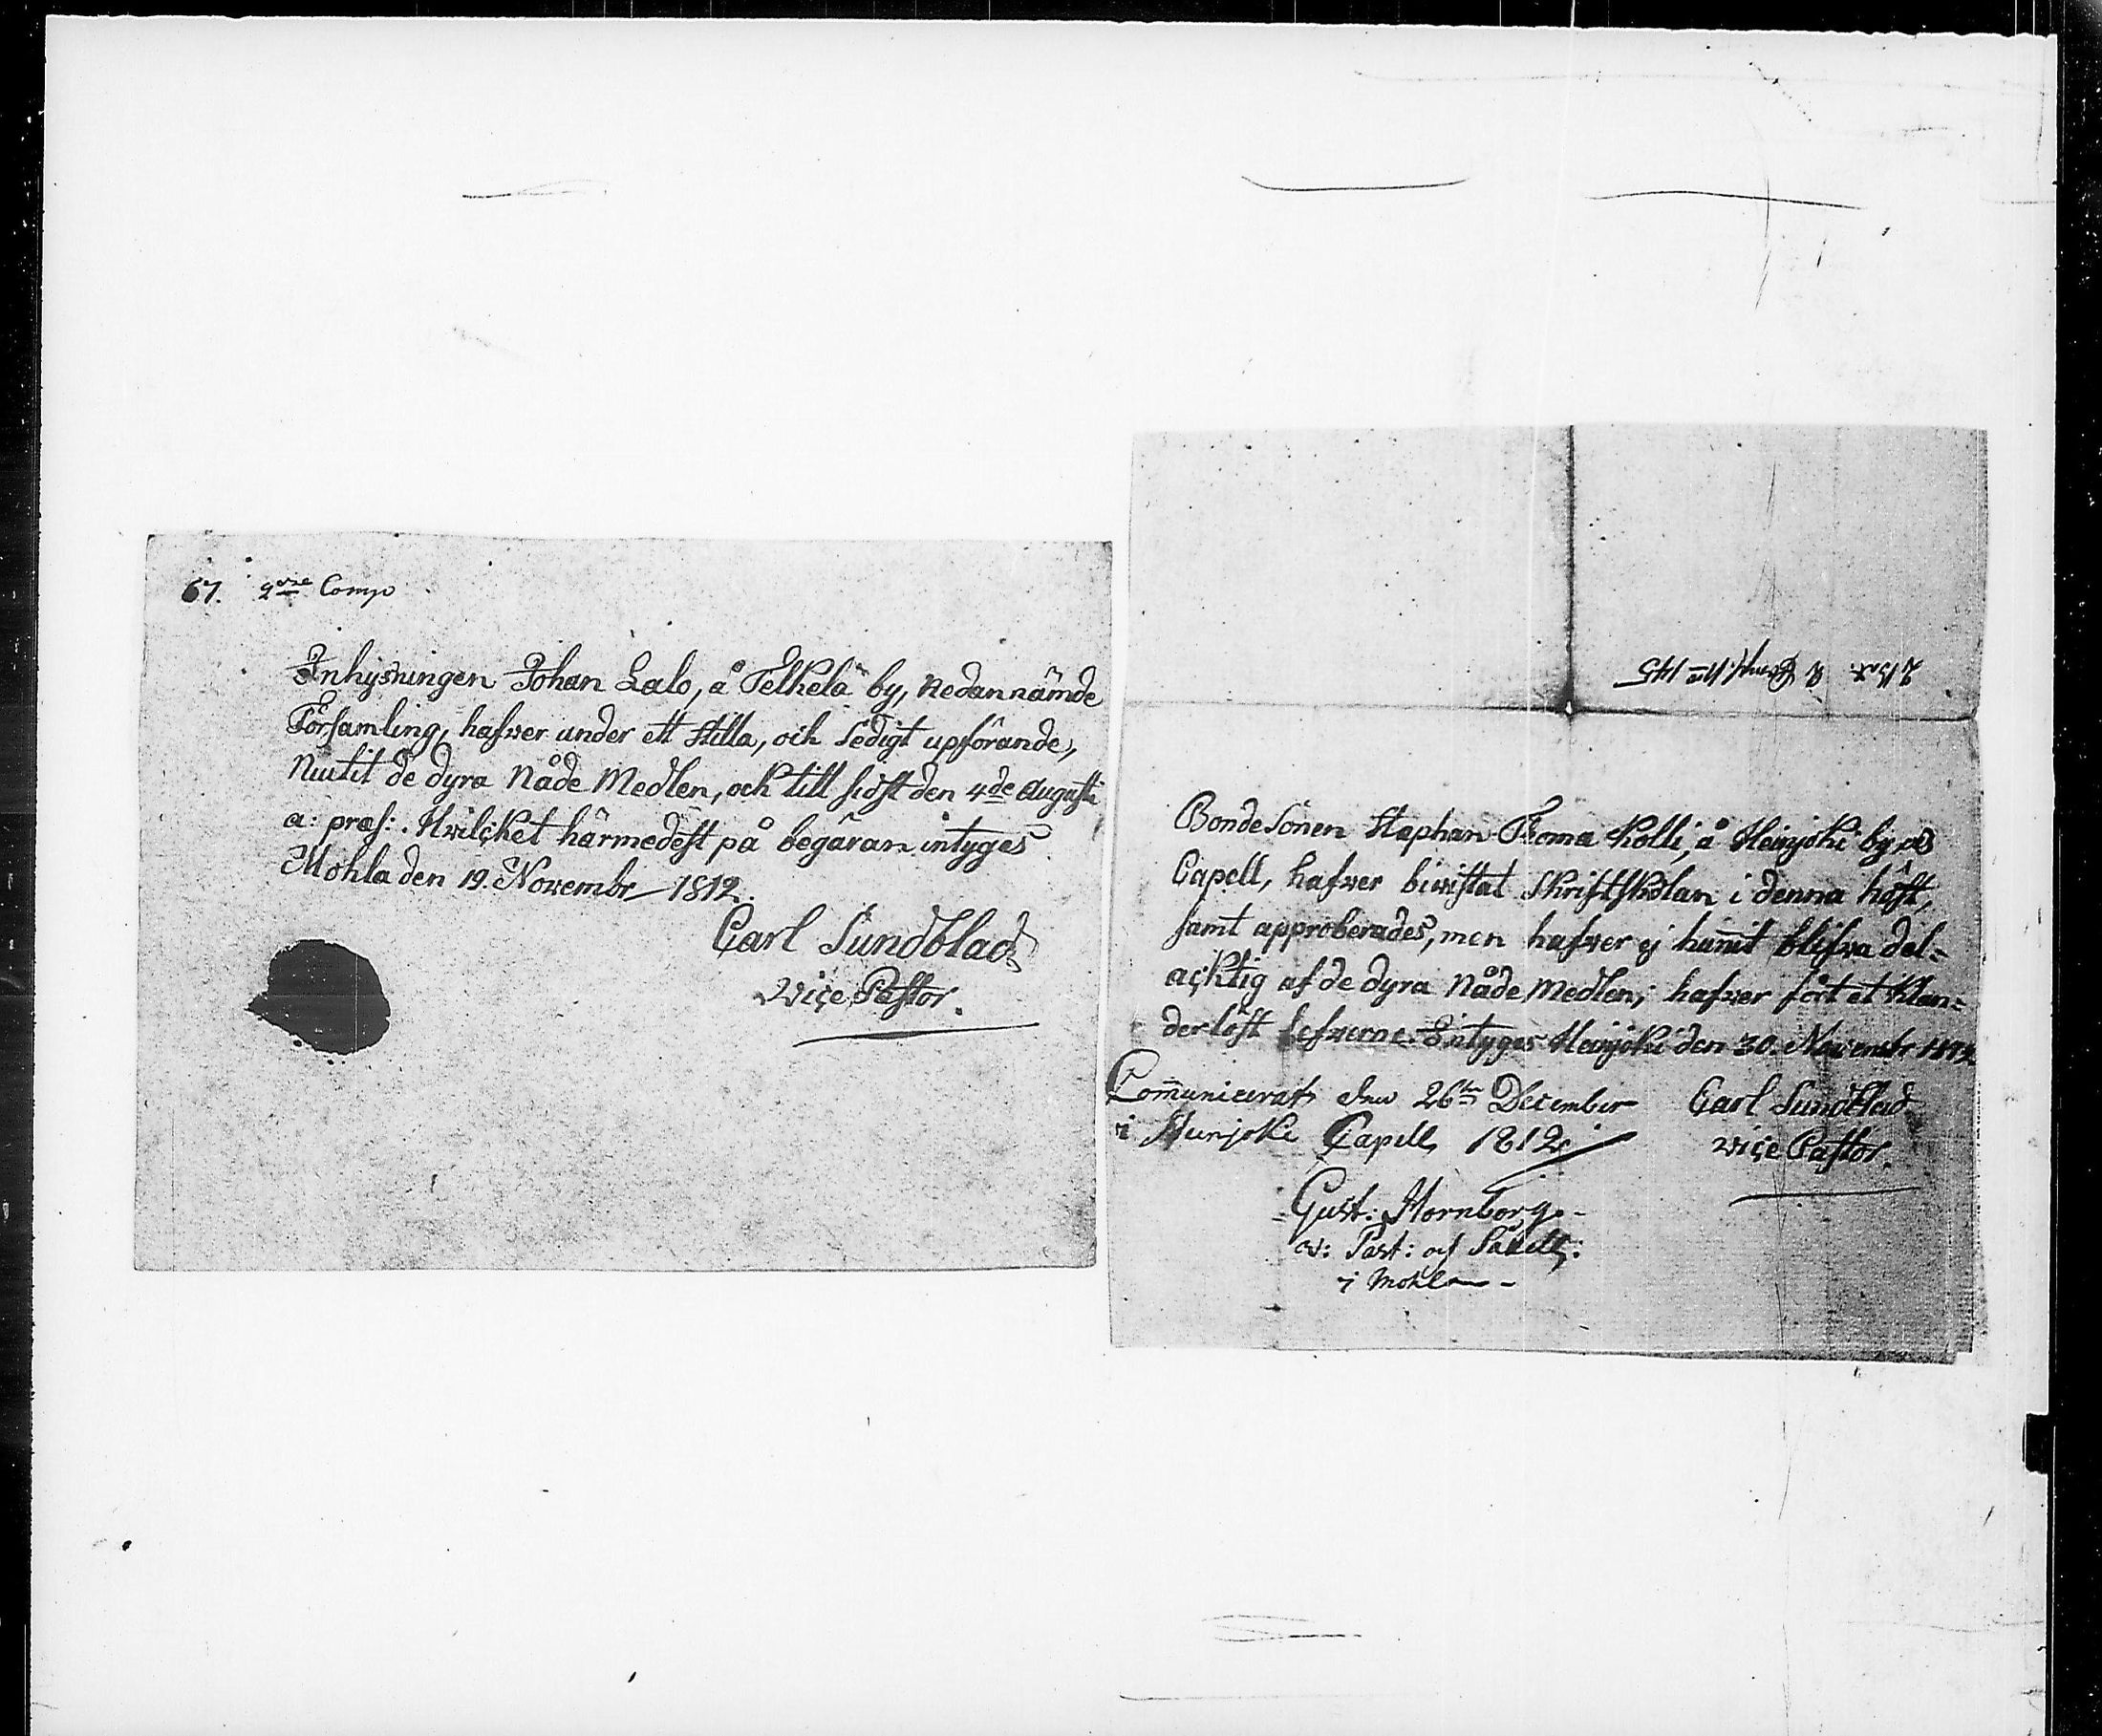 67. 2dre Comp
Inhysningen Johan Lalo, å Telkelä by, nedannämde
Församling, hafver under ett stilla, och sedigt upförande,
niutit de dyra Nåde Medlen, och till sidst den 4de Augusti
a: præs:. Hvilcket härmedest på begäran intyges
Mohla den 19. Novembr 1812.
Carl Sundblad
Viçe Pastor.
2 Bat. 2 Comp. No 145
Bonde Sonen Staphan Thoma Kolli, å Heinjoki by
Capell, hafver bivistat Skriftskolan i denna höst,
samt approberades, men hafver ej hunnit blifva del-
acktig af de dyra Nåde Medlen; hafver fört et klan-
derlöst lefverne. Intyges Heinjoki den 30. Novembr 1812
Carl Sundblad
Viçe Pastor.
Communicerat den 26te December
i Heinjoki Capell 1812
Gust: Hornborg
v: Past: och Sacell:
i Mohla